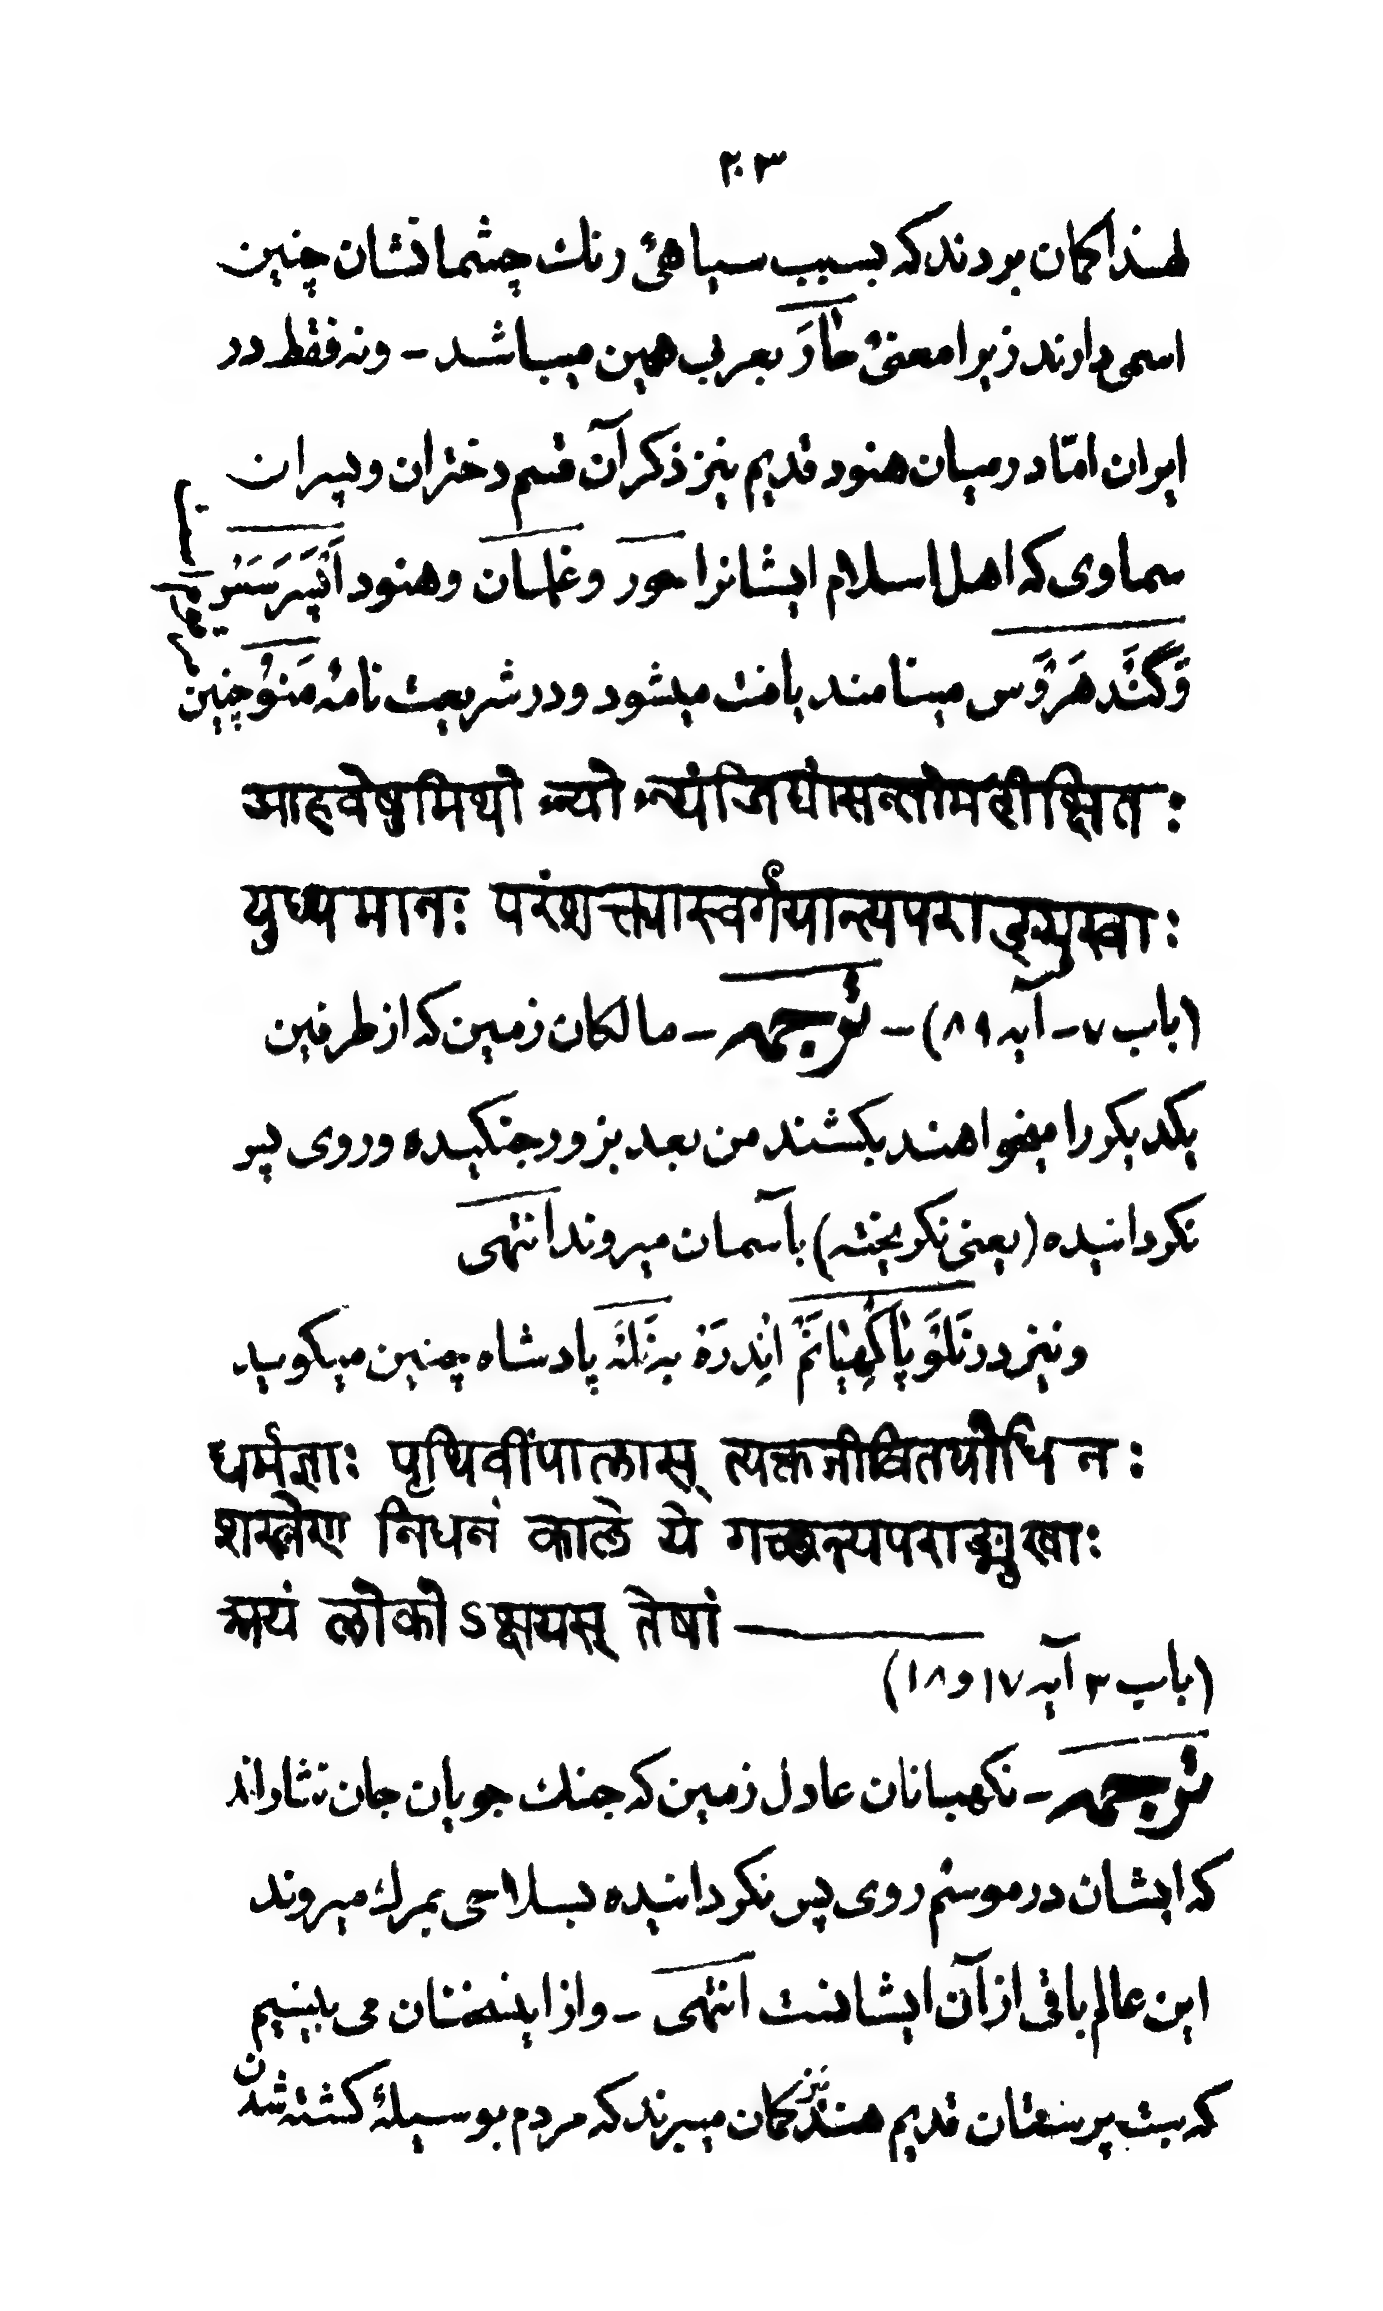 ۲۰۳
لهذا گمان بودند که بسبب سیاهیٔ رنك چشمانشان چنین
اسمی دارند زیرا معنیٔ حَاَرَ بعربی همین میباشد - ونه فقط در
ایران امّا در میان هنود قدیم نیز ذکر آن قسم دختران و پسران
سماوی که اهل اسلام ایشانرا حور و غلمان و هنود اَپسَرَسَس
وَگَنْدهَرْوَس مینامند یافت میشود و در شریعت نامهٔ مَنوُ چنین
आहवेषुमिथो ऽन्यो ऽन्यंजिघांसन्तोमहीक्षितः
युध्यमानः परंशक्त्यास्वर्गंयान्त्यपराङ्मुखाः
(باب ۷ - آیه ۸۹) - ترجمه - مالکان زمین که از طرفین
یکدیکر را میخواهند بکشند من بعد بزور جنکیده و روی پس
نکردانیده (یعنی نکریخته) بآسمان میروند انتهی
و نیز در نَلَوْپَاکْهِیَانَمْ اِنْدرَهْ به نَلَهْ پادشاه چنین میکوید
धर्मज्ञाः पृथिवींपालास् त्यक्तजीवितयोधिनः
शस्त्रेण निधनं काले ये गच्छन्त्यपराङ्मुखाः
अयं लोकोऽक्षयस् तेषां
(باب ۳ آیه ۱۷ و ۱۸)
ترجمه - نکهبانان عادل زمین که جنك جویان جان نثاراند
که ایشان در موسم روی پس نکردانیده بسلاحی بمرك میروند
این عالم باقی از آن ایشانست انتهی - و از اینسخنان می بینیم
که بت پرستان قدیم هند نیز گمان میبرند که مردم بوسیلهٔ کشته شدن